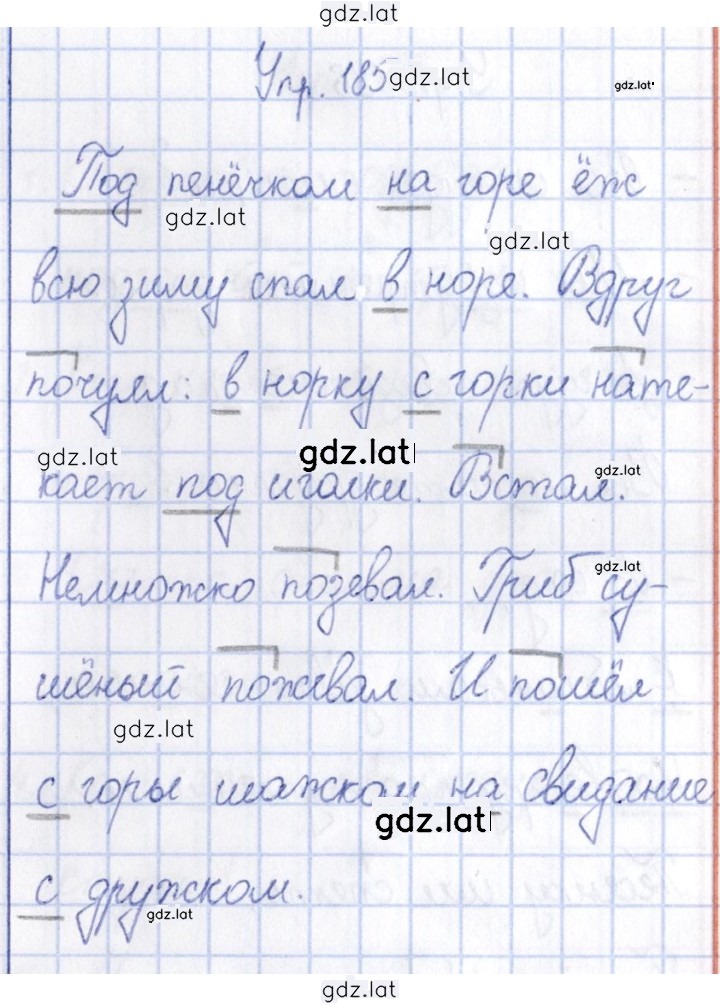 gdz.lat
Упр. 185 gdz.lat gdz.lat
Под пенёчком на горе ёж
gdz.lat gdz.lat
всю зиму спал в норе. Вдруг
почуял: в норку с горки нате-
gdz.lat gdz.lat gdz.lat
кает под иголки. Встал.
Немножко позевал. Гриб су-
gdz.lat
шёный пожевал. И пошёл
gdz.lat
с горы шажком на свидание
gdz.lat
с дружком.
gdz.lat
gdz.lat